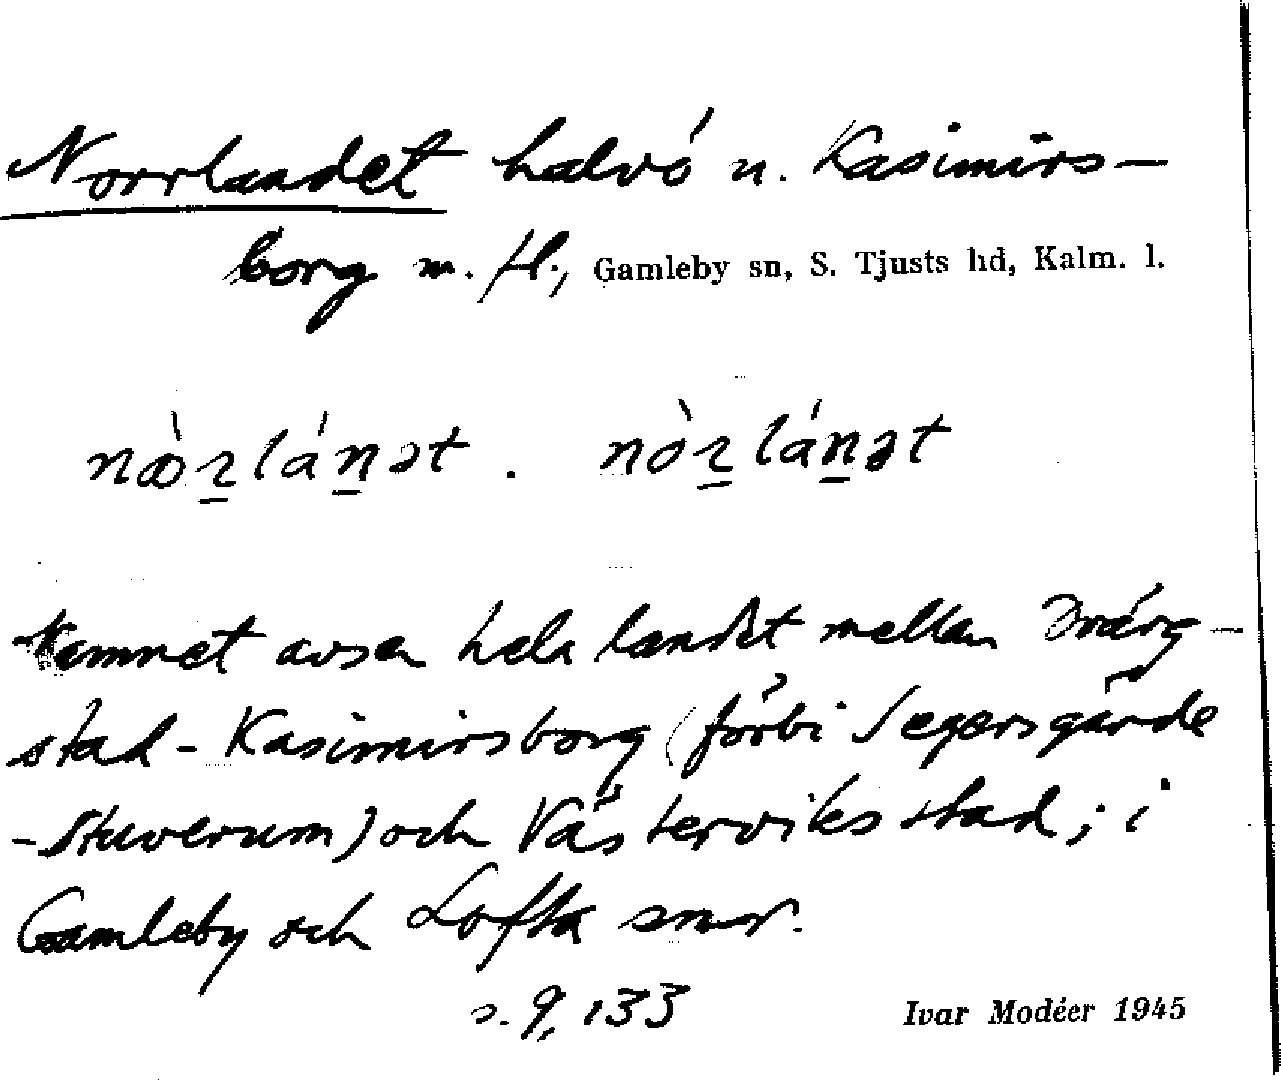 Norrlandet halvö n. Kasimirs-
borg m. fl., Gamleby sn, S. Tjusts hd, Kalm. l.
nò̤ɀlánət . nòɀlánət
Namnet avser hela landet mellan Dvärg-
stad - Kasimirsborg (förbi Segersgärde
- Stuverum) och Västerviks stad; i
Gamleby och Lofta snr.
s. 9, 133
Ivar Modéer 1945